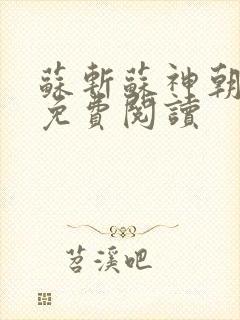 蘇斬蘇神朝
免費閱讀
苕溪吧